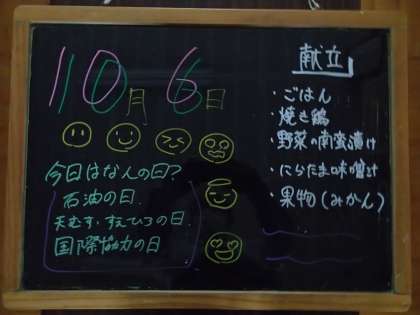 10月6日
今日はなんの日?
石油の日
天むす・すえひろの日
国際協力の日
献立
・ごはん
・焼き鶏
・野菜の南蛮漬け
・にらたま味噌汁
・果物(みかん)